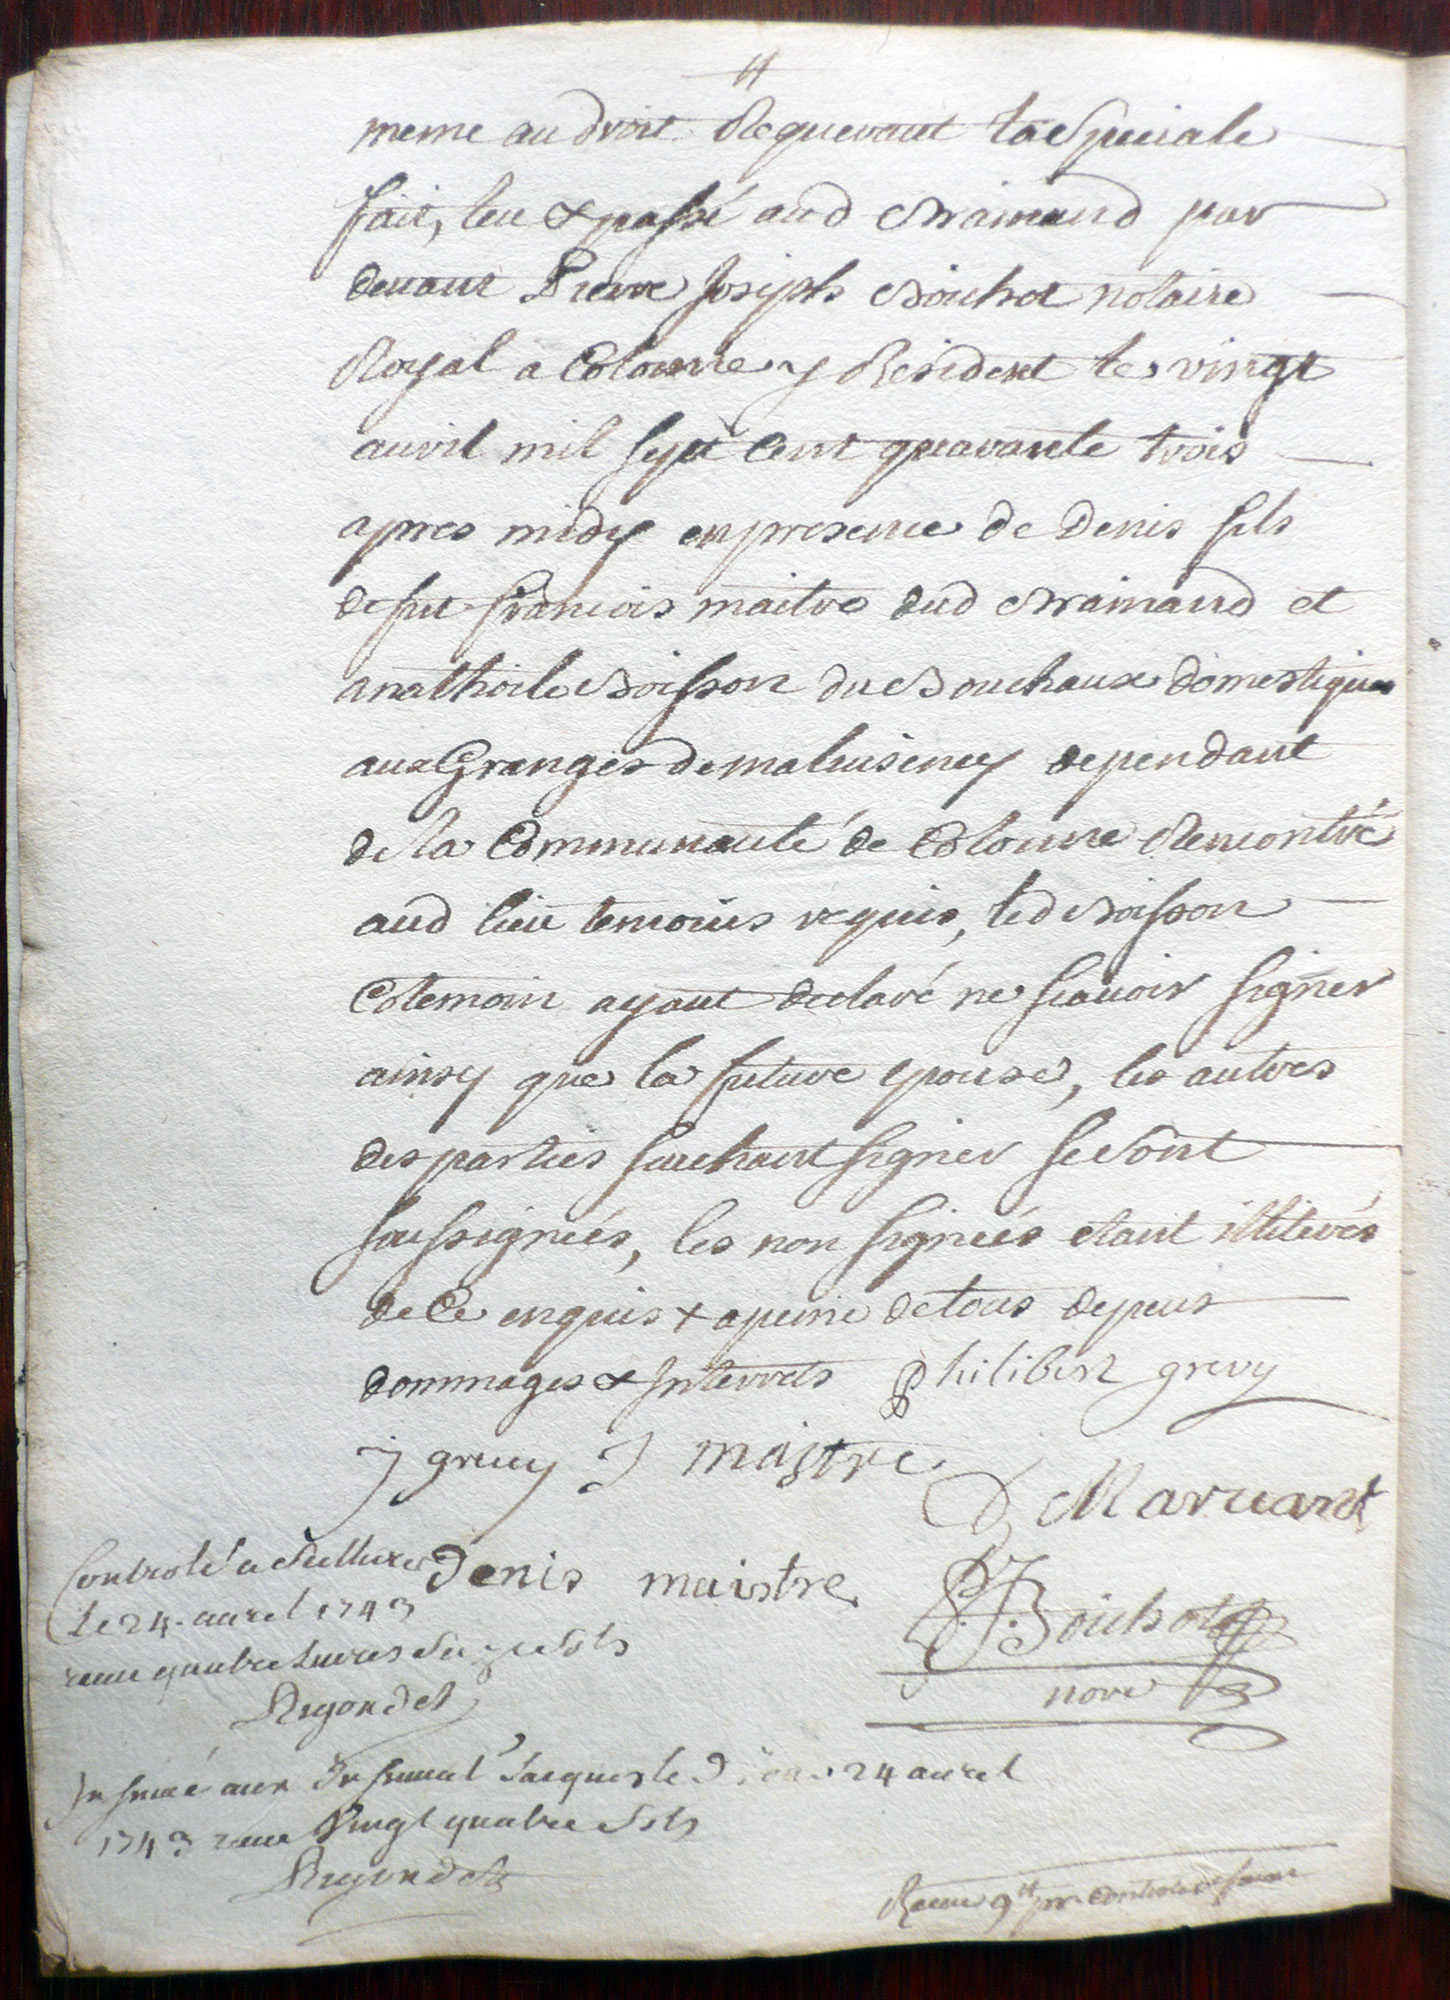 meme au droit Requerant la Speciale
fait, leu & passé aud Brainand par
deuant Pierre Joseph Bouchot notaire
Royal a Colonne y Resident le vingt
auvil mil sept Cent quarante trois
apres midy en presence de Denis fils
de fut francois maitre dud Brainand et
anathoile Boisson du Bouchaux domestique
aux Granges de maluisiney dependant
de la Communauté de Colonne Rencontré
aud lieu temoins requis, led Boisson
Cotemoin ayant declaré ne scauoir signer
ainsy que la future epouse, les autres
des parties scachant signer se sont
soussignées, les non signées etant illiterés
de Ce enquis + a peine de tous depens
dommages & Interrets philibert grevy
j grevy J maistre
D Maruant
Denis maistre
PJ Boichot
nore
Controlé a Sellieres
Le 24 auril 1743
receu quatre Liures Seize Sols
Rigondet
Insinué aux Jacques le 24 auril
1743 receu Vingt quatre Sols
Rigondet
Receu 9tt pr Controle